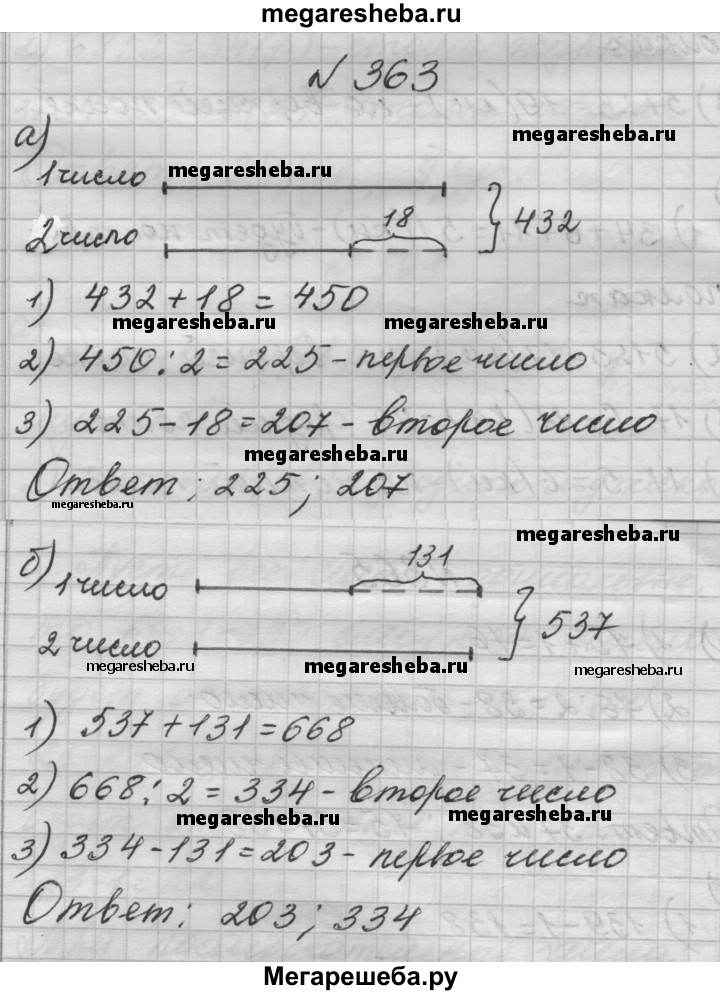 megaresheba.ru
№ 363
а)
megaresheba.ru
1 число
megaresheba.ru
18
432
2 число
1) 432 + 18 = 450
megaresheba.ru megaresheba.ru
2) 450 : 2 = 225 - первое число
3) 225 - 18 = 207 - второе число
megaresheba.ru
Ответ: 225; 207
megaresheba.ru
megaresheba.ru
131
б)
1 число
537
2 число
megaresheba.ru megaresheba.ru megaresheba.ru
1) 537 + 131 = 668
2) 668 : 2 = 334 - второе число
megaresheba.ru megaresheba.ru
3) 334 - 131 = 203 - первое число
Ответ: 203; 334
Мегарешеба.ру